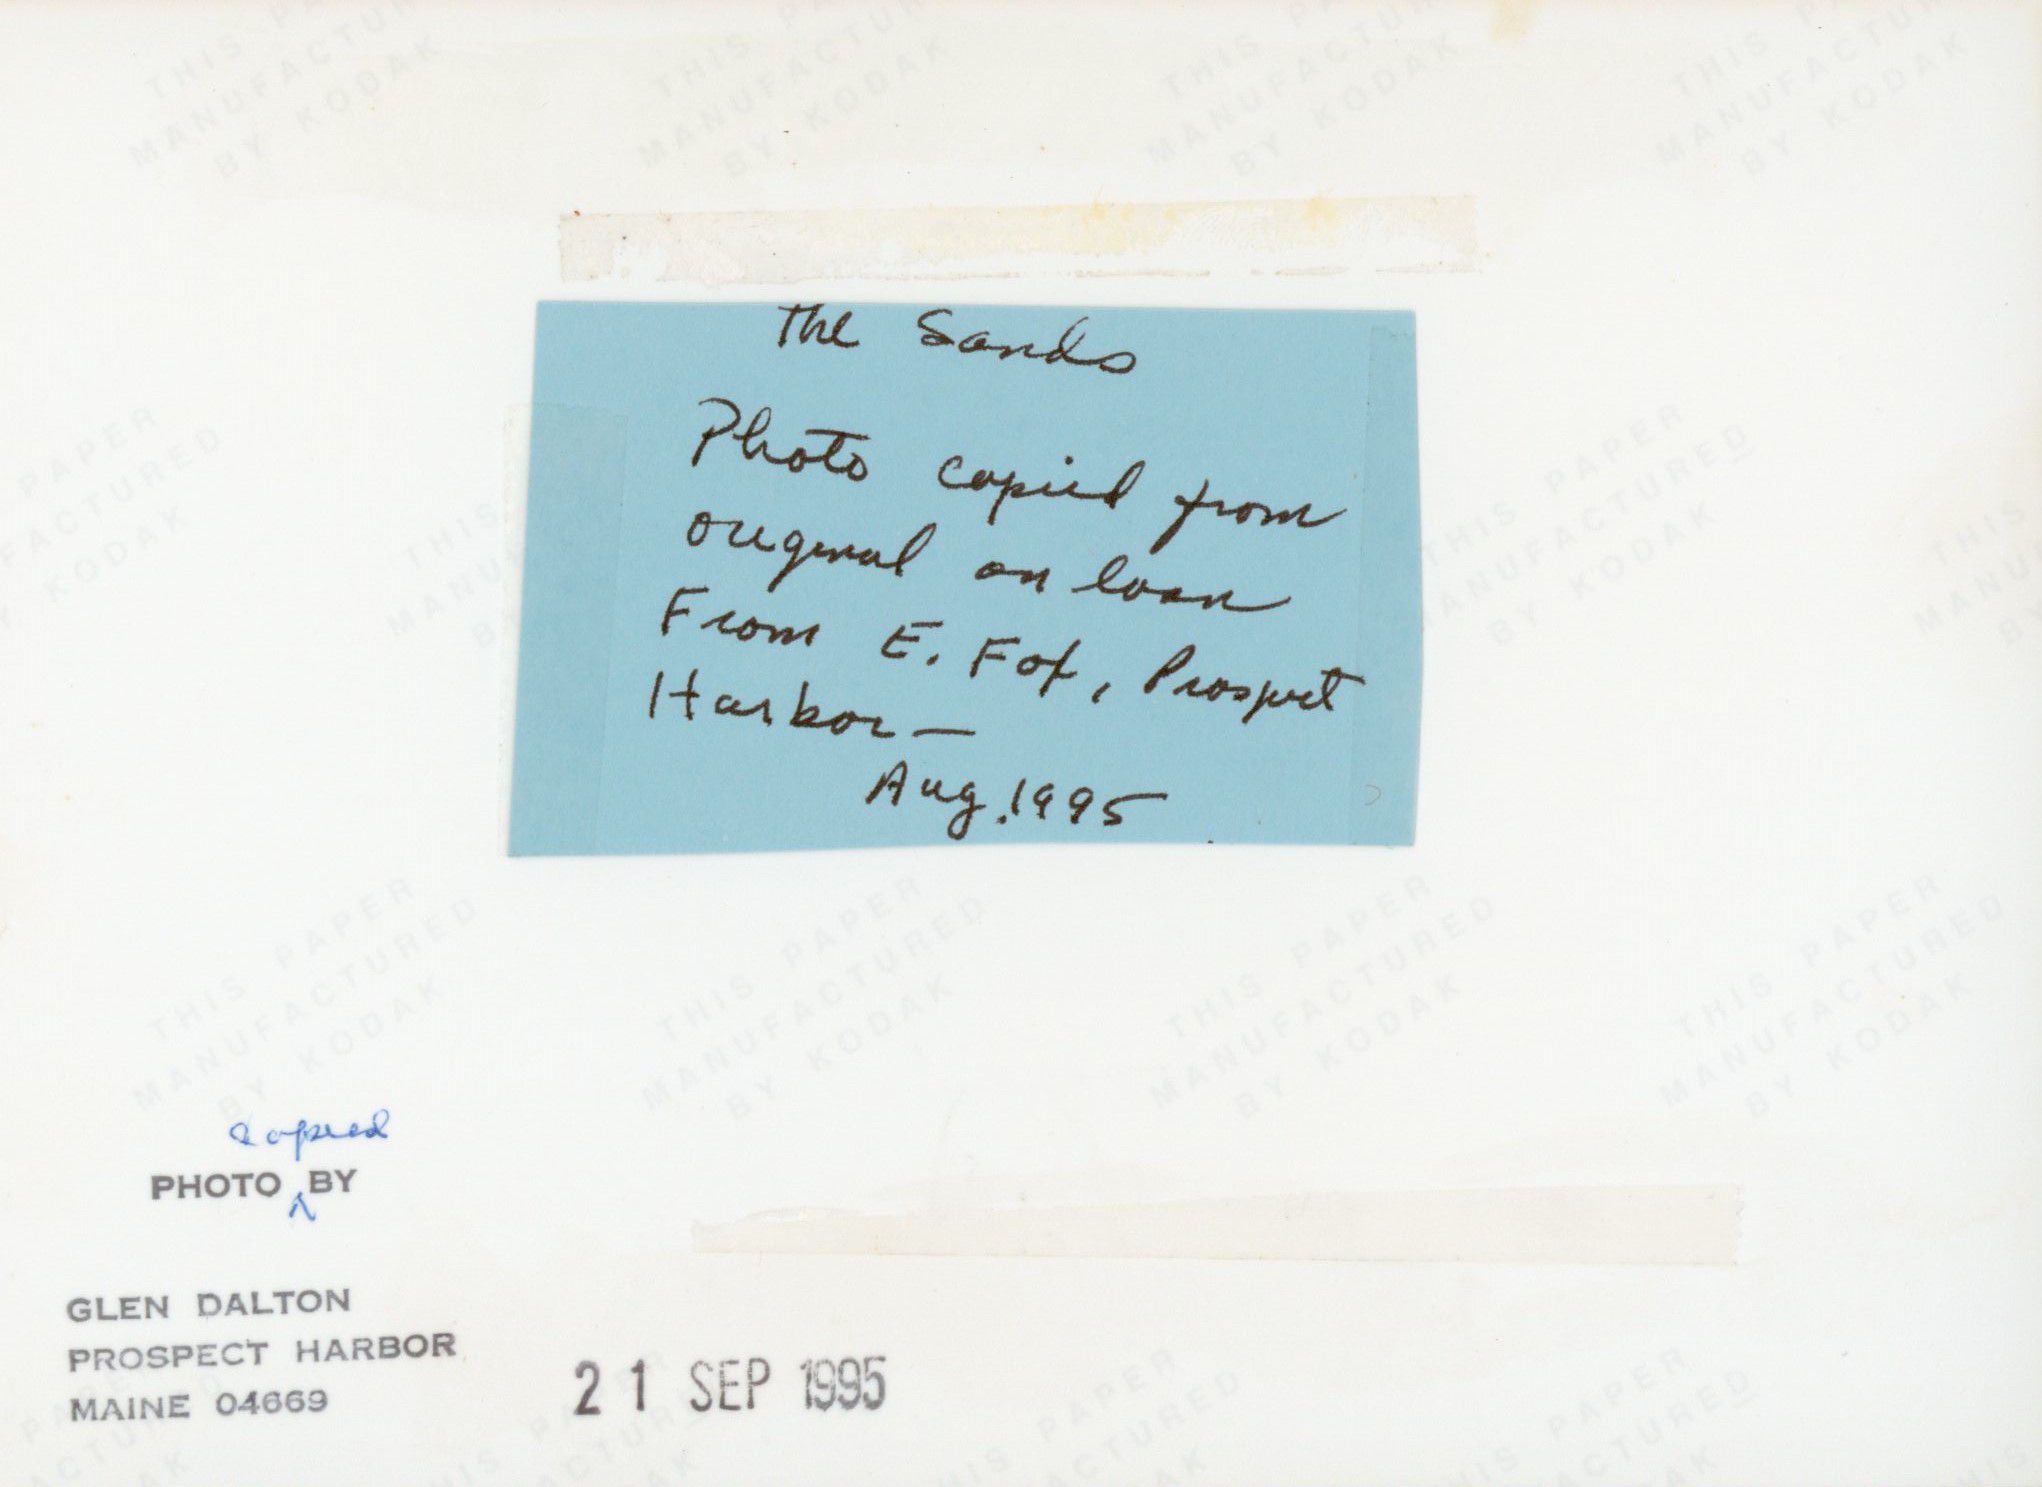 The Sands
Photo copied from
original on loan
From E. Fox, Prospect
Harbor—
Aug. 1995
copied
PHOTO ^ BY
GLEN DALTON
PROSPECT HARBOR
MAINE 04669
21 SEP 1995
THIS PAPER
MANUFACTURED
BY KODAK